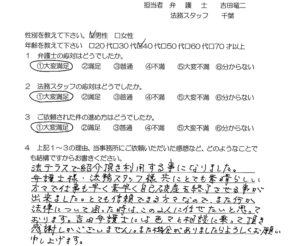 担当者 弁護士 吉田竜二
法務スタッフ 千葉
性別を教えて下さい。 ☑男性 □女性
年齢を教えて下さい □20代 □30代 ☑40代 □50代 □60代 □70才以上
1 弁護士の応対はどうでしたか。
①大変満足 ②満足 ③普通 ④不満 ⑤大変不満 ⑥分からない
2 法務スタッフの応対はどうでしたか。
①大変満足 ②満足 ③普通 ④不満 ⑤大変不満 ⑥分からない
3 ご依頼された件の進め方はどうでしたか。
①大変満足 ②満足 ③普通 ④不満 ⑤大変不満 ⑥分からない
4 上記1~3の理由、当事務所にご依頼いただいた感想など、どのようなことで
も結構ですからお書きください。
法テラスで紹介頂き利用する事になりました。
弁護士様・法務スタッフ様共にとても素晴らしい
方で仕事も早く素早く自己破産を終了させる事が
出来ました。とても信頼できる方なので、また何か
法律について困った時はこの2人に任せたいと思って
おります。吉田弁護士には色々と相談に乗って頂き
感謝しかございません。また機会がありましたらよろしくお願い
申し上げます。